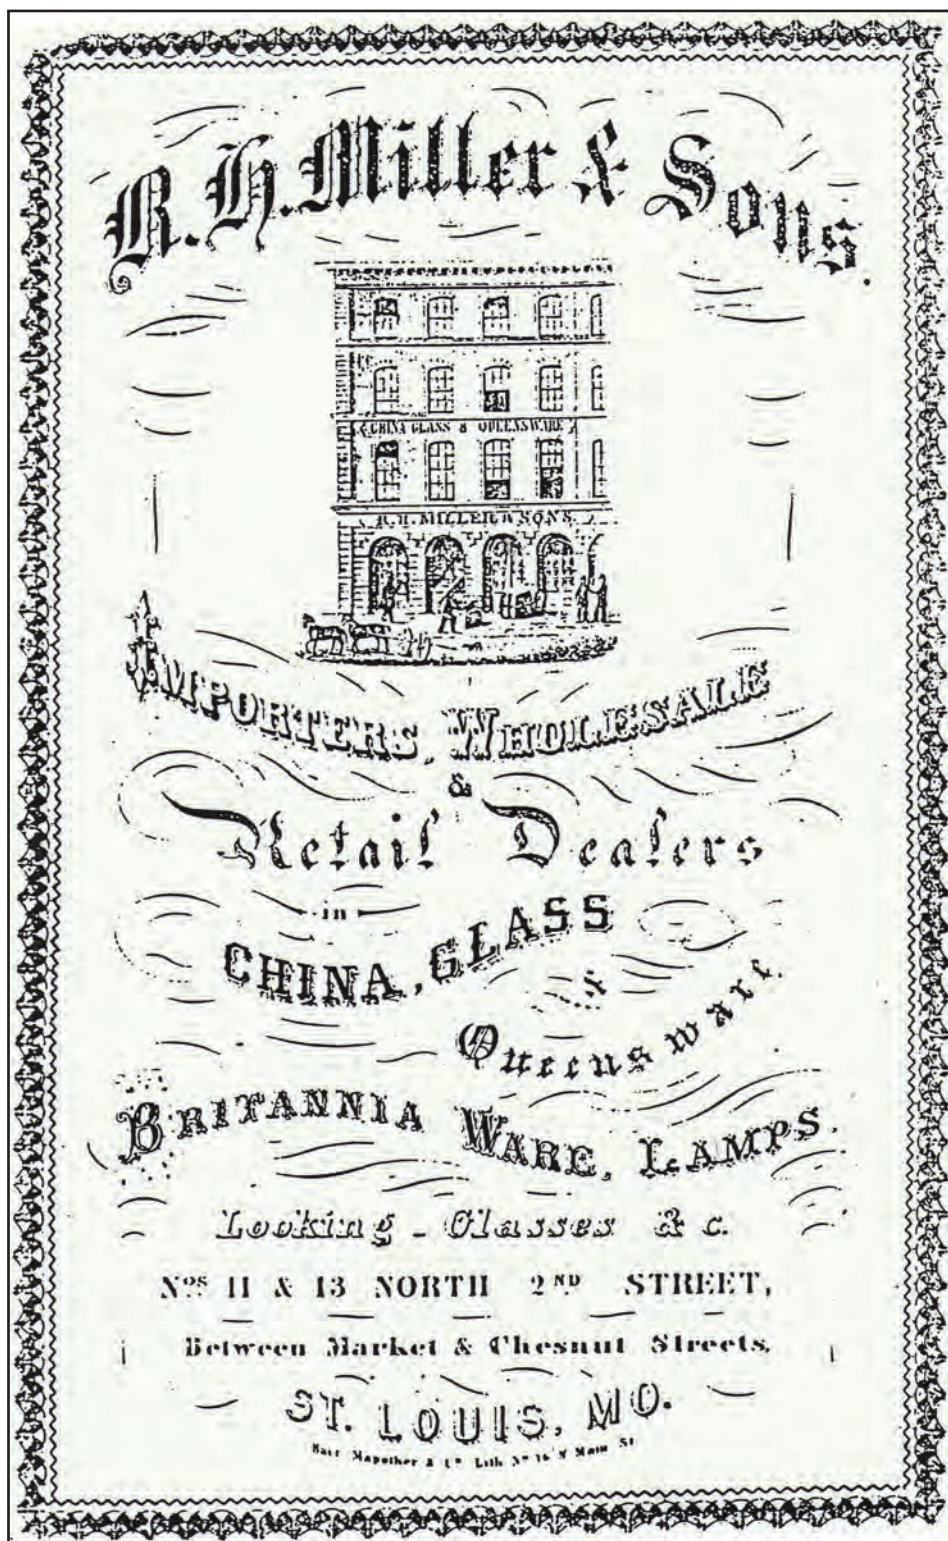 R. H. Miller & Sons.
CHINA GLASS & QUEENSWARE
R. H. MILLER & SONS.
IMPORTERS, WHOLESALE
&
Retail Dealers
in
CHINA, GLASS
&
Queensware.
BRITANNIA WARE, LAMPS.
Looking-Glasses & c.
Nos 11 & 13 NORTH 2ND STREET,
Between Market & Chesnut Streets,
ST. LOUIS, MO.
Mapother & Co Lith No N Main St